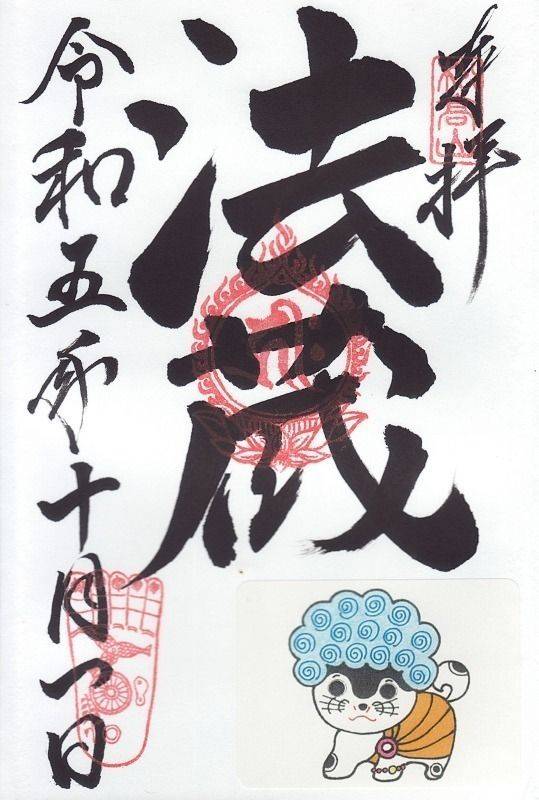 奉拝
法蔵
令和五年十月一日